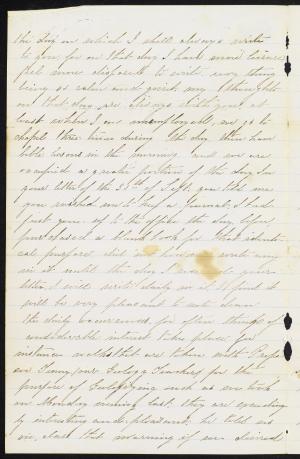 the day on which I shall always write
to you for on that day I have more leisure
feel more disposed to write every thing
being so calm and quiet my thoughts
on that day are always with you at
least when I am unemployed, we go to
chapel three times during the day then have
bible lesson in the morning and we are
occupied a greater portion of the day In
your letter of the 25th of Sept. you told me
you wished me to keep a Journal, I had
just gone up to the office the day before
purchased a blank book for that identical
purpose did not however write any
in it until this day I received your
letter I will write daily in it I find it
will be very pleasant to note down
the daily occurrences, for often things of
considerable interest take place for
instance walks that are taken with Professor
our Geology Teachers for the
purpose of Geologizing such as we took
on Monday evening last, they are exceedingly
interesting and pleasant; he told us
in class this morning of an